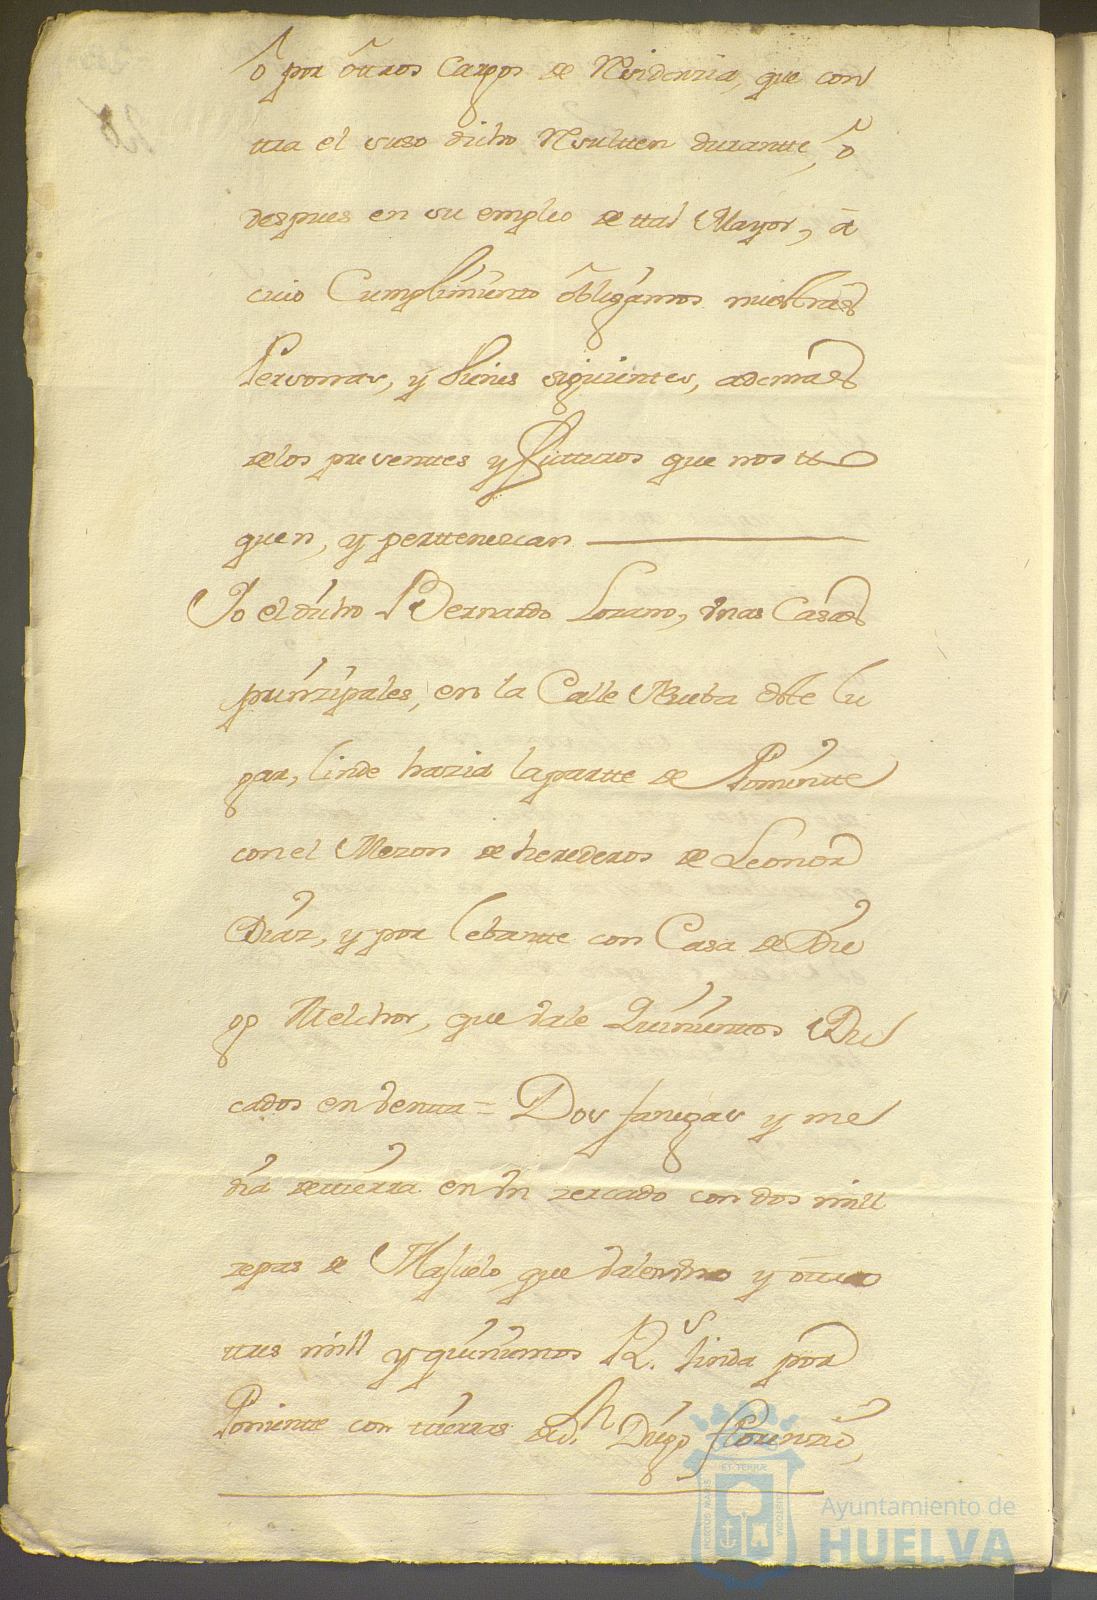 ô por ôttros Cargos de Residenzia, que con
ttra el suso dicho Resultten durantte, ô
despues en su empleo de ttal Mayor, â
cuio Cumplimiento ôbligamos nuestras
Personas, y bienes siguientes, ademas
delos presenttes y futturos que nos tto
quen, y perttenezcan
Yo el dicho Bernardo Lozano, Vnas Casas
prinzipales, en la Calle Arriba deste lu
gar, linde hazia lapartte de Ponientte
con el Mezon de herederos de Leonor
Diaz, y por lebantte con Casa de Die
go Melchor, que Vale Quinienttos Du
cados en Ventta = Dos fanegas y me
dia dettierra en Vn zercado con dos mill
zepas de Majuelo que Valen Vno y ottro
ttres mill y quinientos R.s linda por
Ponientte con ttierras de d.n Diego Florenzio,
Ayuntamiento de
HUELVA